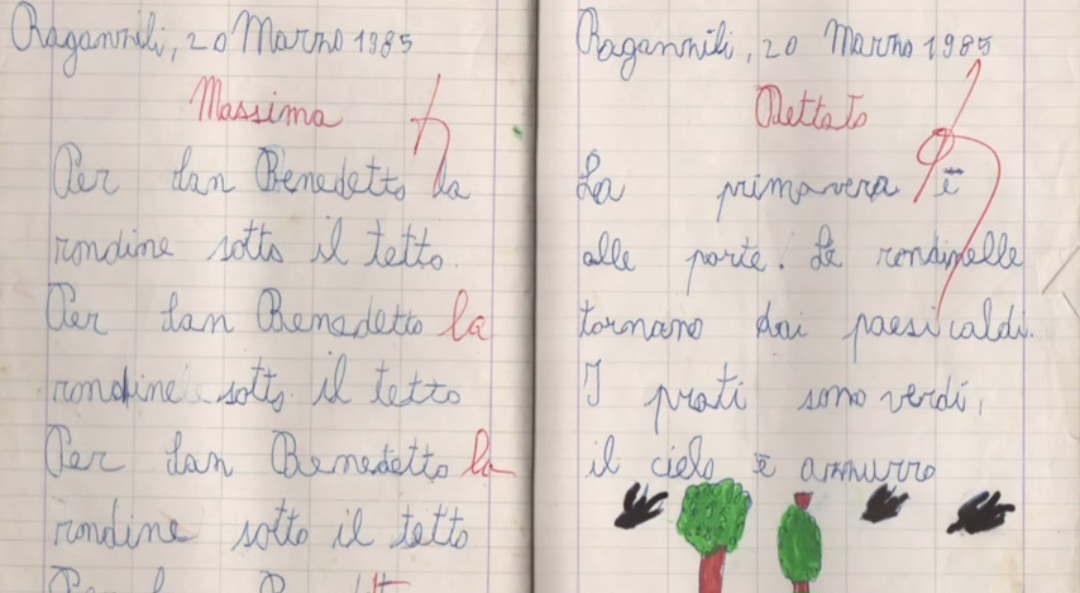 Raganzili, 20 Marzo 1985
Massima
Per San Benedetto la
rondine sotto il tetto.
Per San Benedetto la
rondine sotto il tetto
Per San Benedetto la
rondine sotto il tetto
Per
Raganzili, 20 Marzo 1985
Dettato
La primavera è
alle porte. Le rondinelle
tornano dai paesi caldi.
I prati sono verdi,
il cielo è azzurro